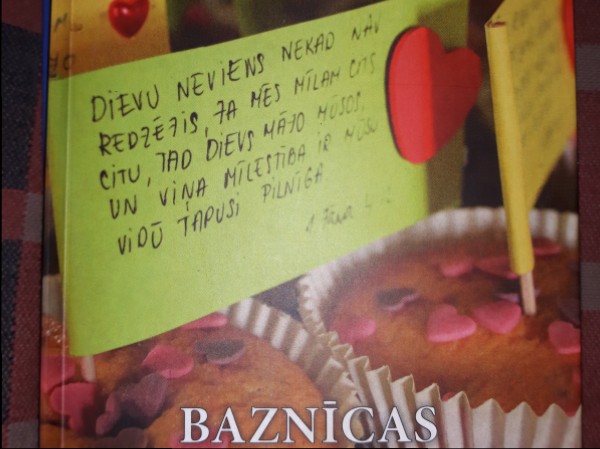 DIEVU NEVIENS NEKAD NAV
REDZĒJIS, JA MĒS MĪLAM CITS
CITU, TAD DIEVS MĀJO MŪSOS,
UN VIŅA MĪLESTĪBA IR MŪSU
VIDŪ TAPUSI PILNĪGA
BAZNĪCAS